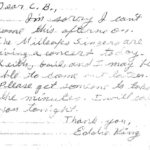 Dear C.B.,
I'm sorry I can't
come this afternoon.
The Milcaps Singers are
giving a concert today.
Keith, build and I may be
able to come out later.
Please get someone to take
the minutes. I will call
you tonight.
Thank you,
Eddie King